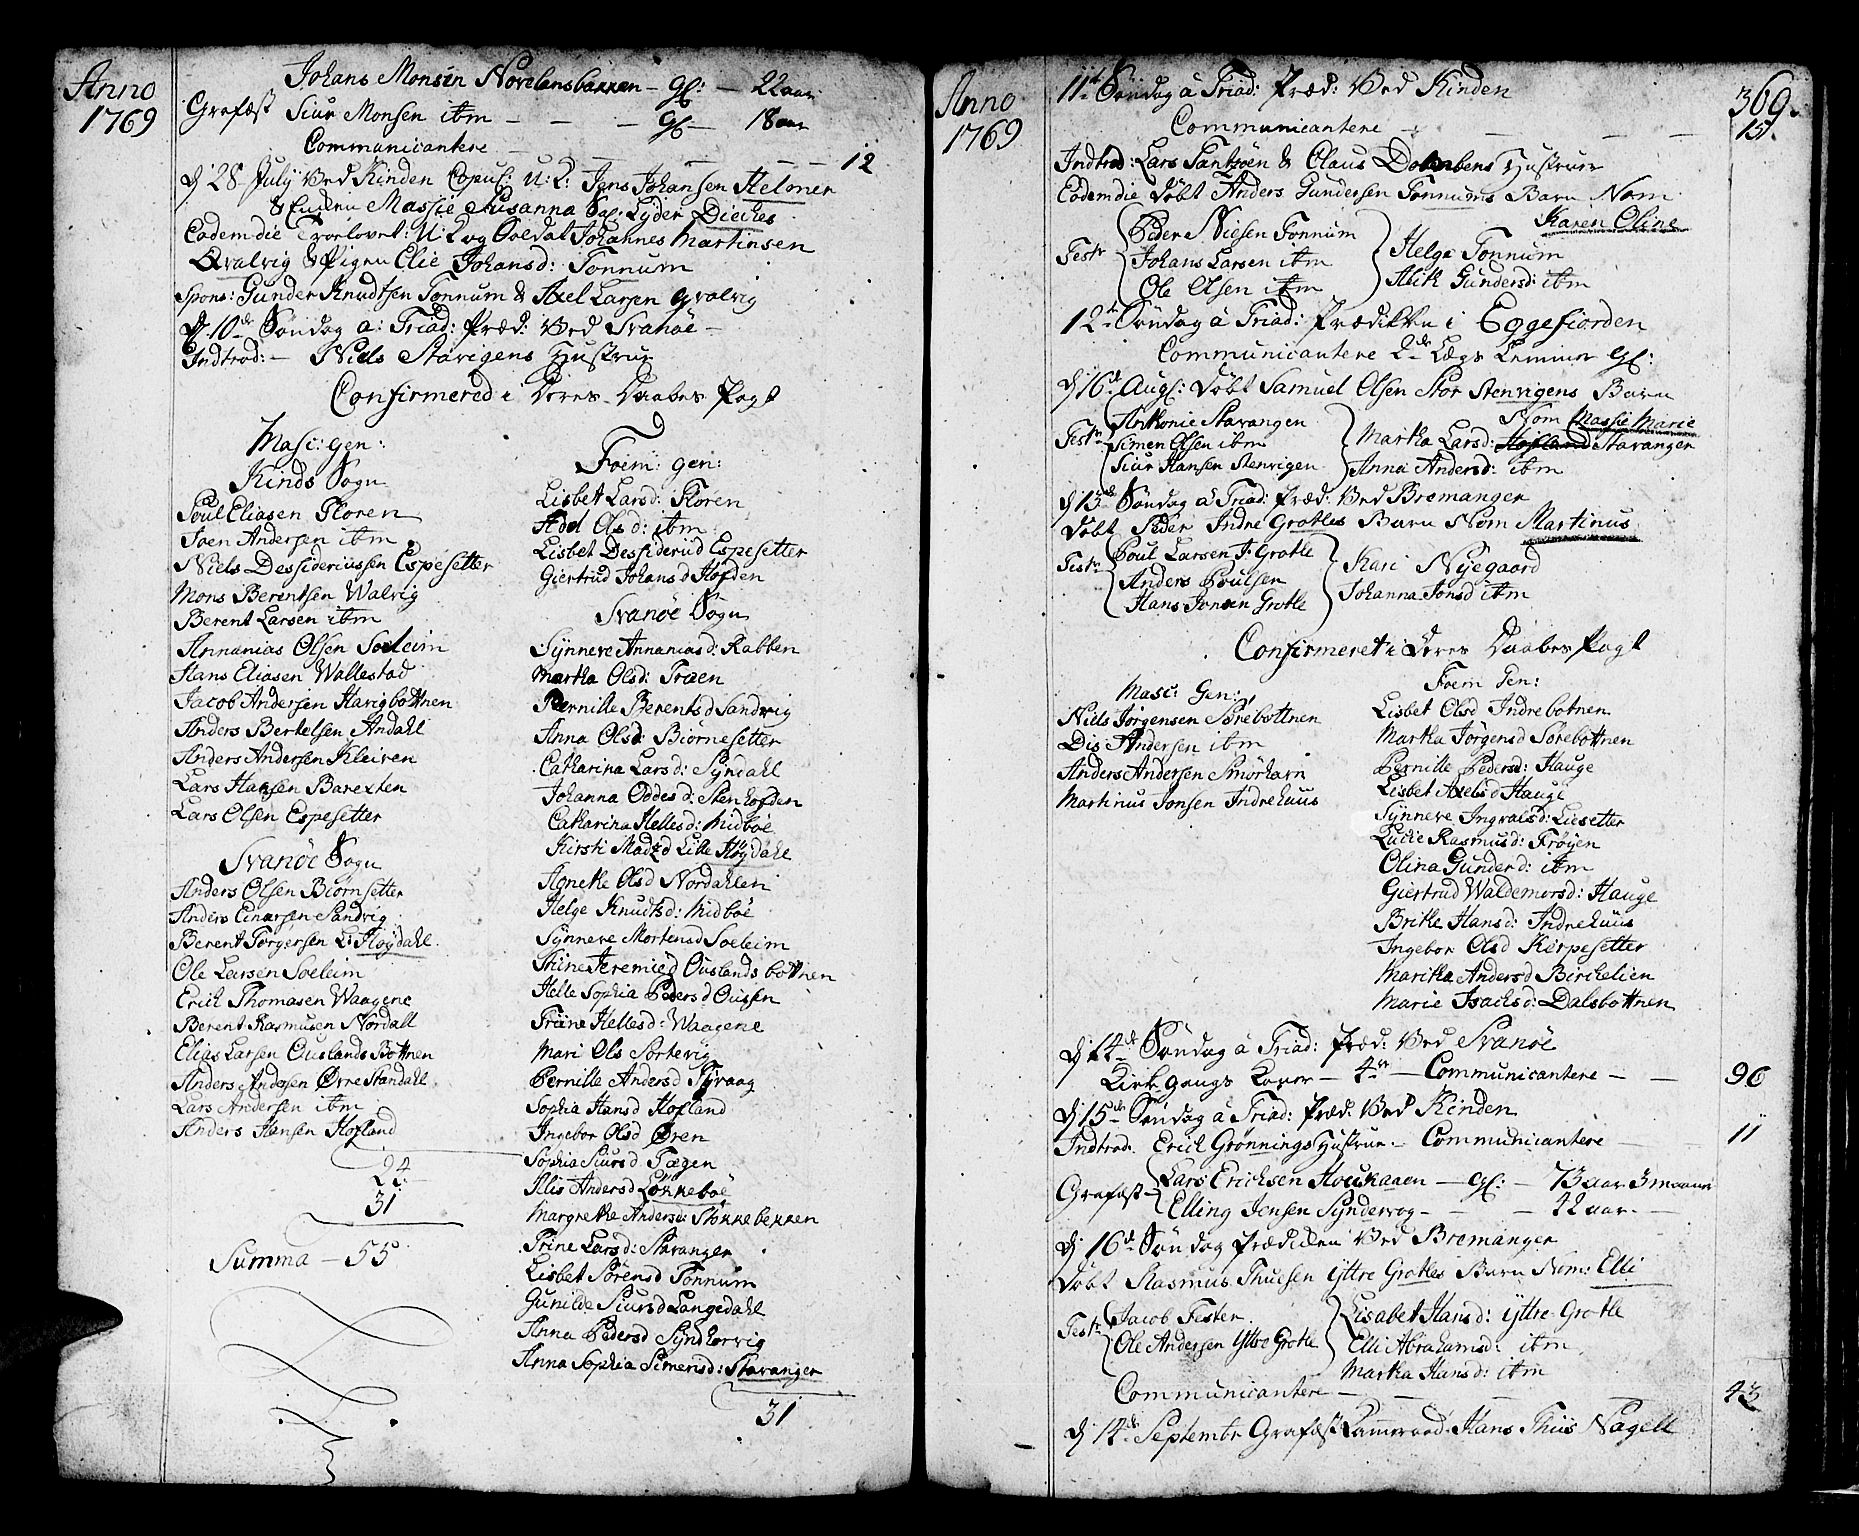 Anno
1769
Johans Monsen Norelansbakken – gl: – 22 aar
Grafæst Siur Monsen ibm – – – gl – 18 aar
Communicantere – – – – 12
Dj 28 July Ved Kinden Copul: U: K: Jens Johansen Helöner
& Enken Massie Susanna Sal: Lyder Dieckes
Eodem die Trorlovet: U: K og Soldat Johannes Martinsen
Qvalvig & Pigen Elie Johansd: Tonnum
Spons: Gunder Knudtsen Tonnum & Axel Larsen Qvalvig
Dj 10de Söndag a: Triad: Præd: Ved Svanöe –
Indtrad: – Niels Starigens Hustrue
Confirmered i Deres Daabes Pagt
Masc: gen:
Kinds Sogn
Poul Eliasen Floren
Soen Andersen ibm
Niels Dessideriussen Espesetter
Mons Berentsen Walvig
Berent Larsen ibm
Annanias Olsen Soeleim
Hans Eliasen Wallestad
Jacob Andersen Havigbottnen
Anders Bertelsen Andahl
Anders Andersen Kleiven
Lars Hansen Barexten
Lars Olsen Espesetter
Svanöe Sogn
Anders Olsen Biörnsetter
Anders Einersen Sandvig
Berent Jörgensen L: Höydahl
Ole Larsen Soeleim
Erich Thomasen Waagene
Berent Rasmusen Nordall
Elias Larsen Ouslands Bottnen
Anders Andersen Ørre Standahl
Lars Andersen ibm
Anders Hansen Hofland
24
31
Summa – 55
Foem: gen:
Lisbet Larsd: Floren
Adel Olsd: ibm
Lisbet Dessiderüd Espesetter
Giertrud Johansd Höfden
Svanöe Sogn
Synnere Annaniasd: Rabben
Martha Olsd: Traen
Pernille Berentsd Sandvig
Anna Olsd: Biörnesetter
Catharina Larsd: Syndahl
Johanna Oddesd: Stenhofden
Catharina Hellesd: Midböe
Kirsti Madzd Lille Höydahl
Agnethe Olsd Nordahlen
Helge Knudtsd: Midböe
Synnere Mortensd Soeleim
Stiine Jeremied Ouslands bottnen
Helle Sophia Pedersd Oussen
Triine Hellesd: Waagene
Mari Ols Sortevig
Pernille Andersd Flyvaag
Sophia Hansd Hofland
Ingebor Olsd Øren
Sophia Siursd Tægen
Alis Andersd Lönneböe
Margrethe Andersd: Stokkebekken
Trine Larsd: Stavanger
Lisbet Sörensd Tonnum
Gunilde Siursd Langedahl
Anna Pedersd Syndhorvig
Anna Sophia Simensd: Stavanger
31
Anno
1769
369.
11te Söndag a Triad: Præd: Ved Kinden
Communicantere – – – – 15.
Indtrad: Lars Tantzöen & Claus Hustruer
Eodem die Döbt Anders Gundersen Tonnums Barn Nom
Karen Oline
Testr Peder Nielsen Tonnum
Johans Larsen ibm
Ole Olsen ibm
Helge Tonnum
Alith Gundersd: ibm
12te Söndag a Triad: Prædiken i Eggefiorden
Communicantere
Dj 16de Aug: Döbt Samuel Olsen Stor Stenvigens Barn
Nom Massie Marie
Testr Anthonie Stavangen
Simen Olsen ibm
Siur Hansen Stenvigen
Martha Larsd: Stavanger
Anna Andersd: ibm
Dj 13de Söndag a Triad: Præd: Ved Bremanger
Döbt Peder Indre Grotles Barn Nom Martinus
Testr Poul Larsen J: Grotle
Anders Poulsen
Hans Jonsen Grotle
Kari Nyegaard
Johanna Jonsd ibm
Confirmeret i Deres Daabes Pagt
Masc: Gen:
Niels Jörgensen Sörebottnen
Dis Andersen ibm
Anders Andersen Smörhavn
Martinus Jonsen Indrehuus
Foem Gen:
Lisbet Olsd Indrebotnen
Martha Jörgensd Sörebottnen
Pernille Pedersd: Hauge
Lisbet Axelsd Hauge
Synnere Ingvalsd: Liesetter
Lucie Rasmusd: Fröyen
Olina Gunderd: ibm
Giertrud Waldemorsd: Hauge
Brithe Hansd: Indrehuus
Ingebor Olsd Kirpesetter
Maritha Andersd Birchelien
Marie Isachsd: Dalsbottnen
Dj 14de Söndag a Triad: Præd: Ved Svanöe
Kirke gangs Koner – 4re – Communicantere – – 96
Dj 15de Söndag a Triad: Præd: Ved Kinden
Indtrad. Erich Grönnings Hustrue – Communicantere – 11
Grafæst Lars Erichsen Houkaaen – gl: – 73 aar 3 maaner
Elling Jensen Syndervog – – 22 aar –
Dj 16de Söndag Prædiken Ved Bremanger
Döbt Rasmus Thuesen Yttre Grotles Barn Nom: Elli
Testr Jacob Fester
Ole Andersen Yttre Grotle
Lisabet Hansd: Yttre Grotle
Elli Abrahamsd: ibm
Martha Hansd: ibm
Communicantere – – – – 43
Dj 14de Septembr Grafæst Kammeraad Hans Thiis Nagell